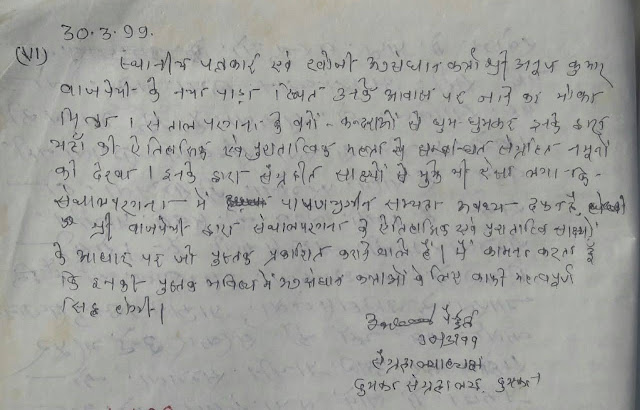 30.3.99.
(VI)
स्थानीय पत्रकार एवं खोजी अनुसंधान कर्त्ता श्री अनूप कुमार
वाजपेयी के नया पाड़ा स्थित उनके आवास पर जाने का मौका
मिला। संतालपरगना के वनों-कन्दराओं से घुम-घुमकर इनके द्वारा
यहाँ की ऐतिहासिक एवं पुरातात्विक महत्ता से सम्बन्धित संग्रहित नमूनों
को देखा। इनके द्वारा संग्रहीत साक्ष्यों से मुझे भी ऐसा लगा कि-
संथालपरगना में पाषाणयुगीन सभ्यता अवश्य
श्री वाजपेयी द्वारा संथालपरगना के ऐतिहासिक एवं पुरातात्विक साक्ष्यों
के आधार पर जो पुस्तक प्रकाशित कराने वाले हैं। मैं कामना करता हूँ
कि इनकी पुस्तक भविष्य में अनुसंधान कर्त्ताओं के लिए काफी महत्वपूर्ण
सिद्ध होगी।
30/3/99
संग्रहालयाध्यक्ष
दुमका संग्रहालय, दुमका